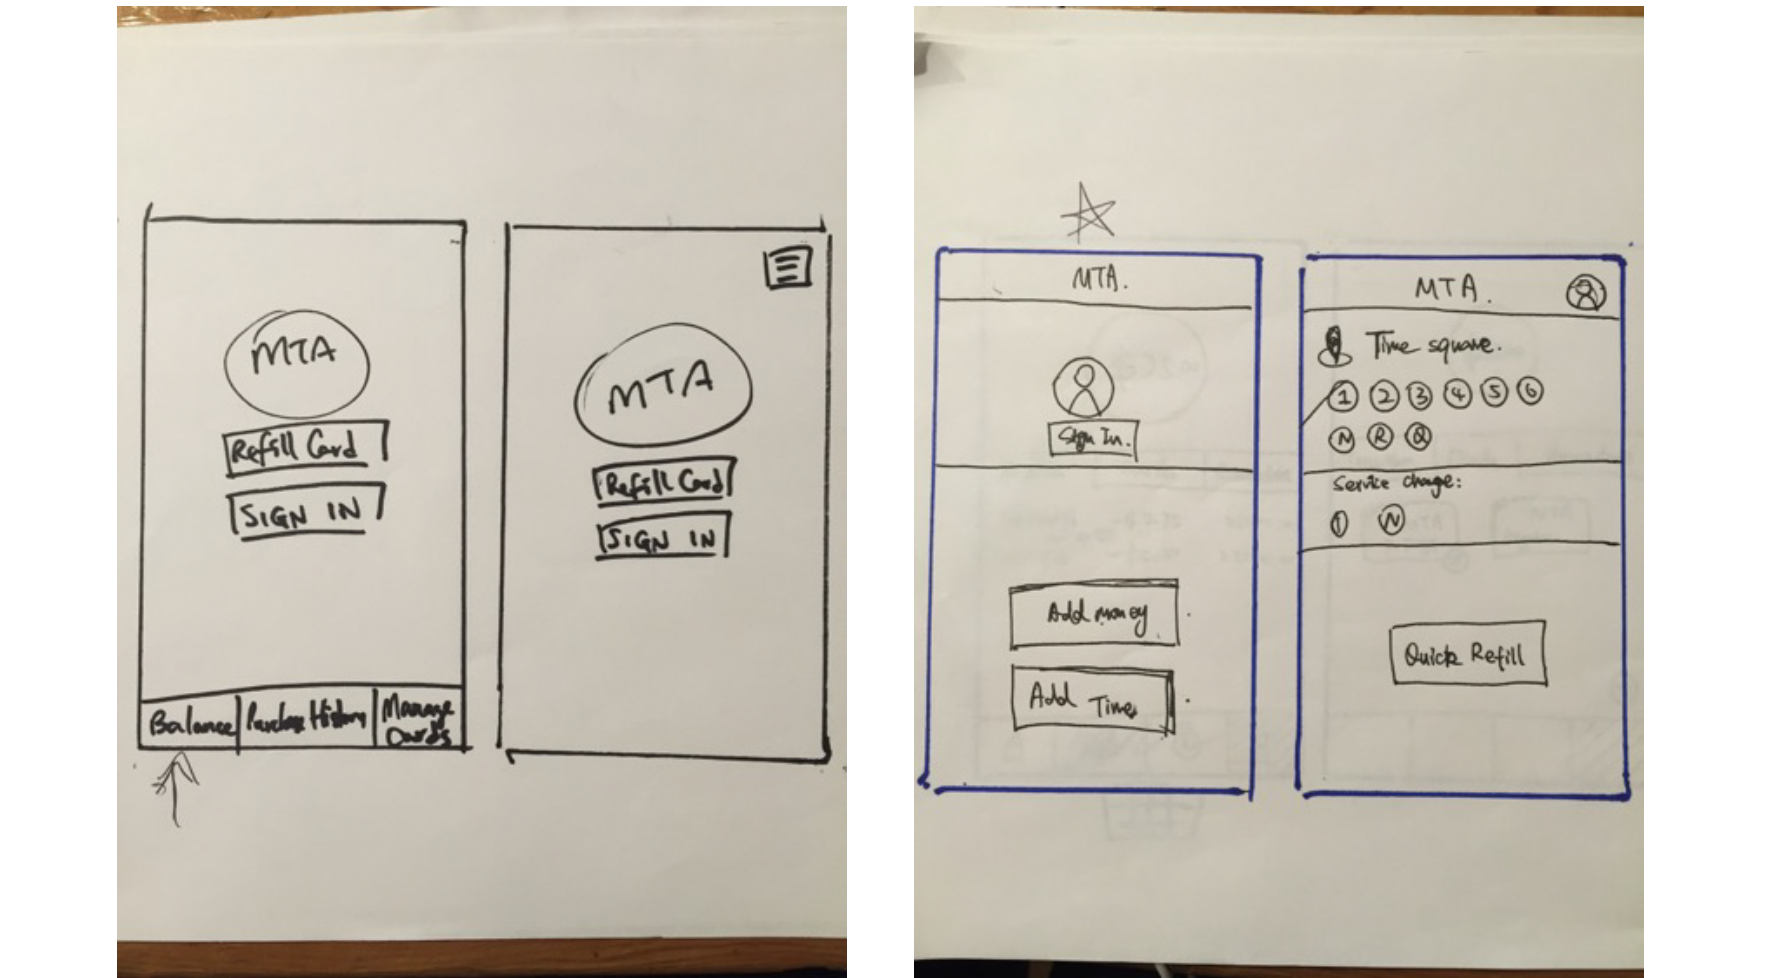 MTA
Refill Card
SIGN IN
Balance
Purchase History
Manage
Cards
MTA
Refill Card
SIGN IN
MTA.
Sign In.
Add money
Add Time
MTA.
Time square.
1 2 3 4 5 6
N R Q
Service change:
1 N
Quick Refill